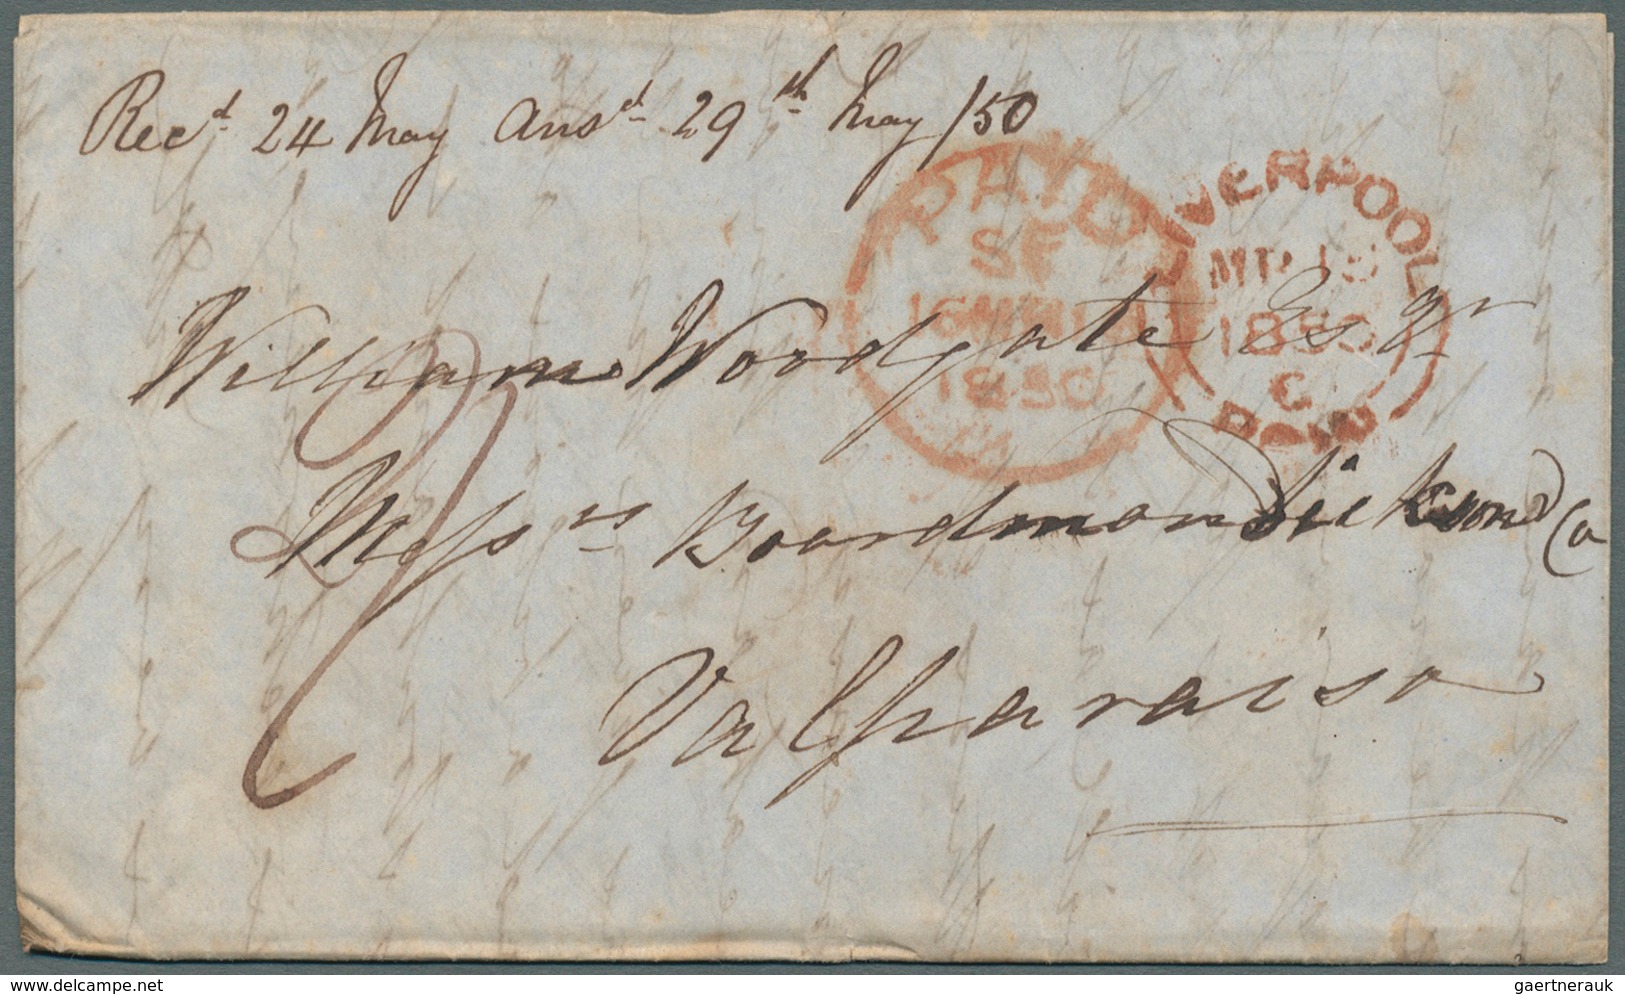 Rec.d 24 May Ans.d 29th May /50
PAID
SF
16 MR 16
1850
LIVERPOOL
MR 15
1850
C
PAID
William Woodgate Esqr
2/
Messrs Boardman Dickson Co
Valparaiso
delcampe.net
gaertnerauk